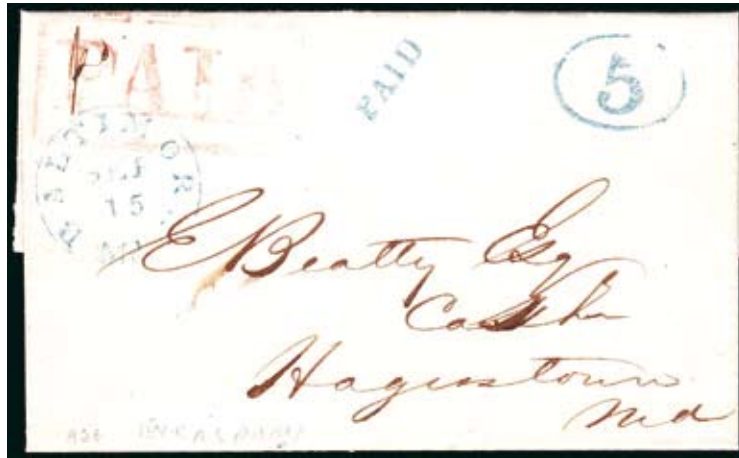 PAID
PAID
5
BALTIMORE
15
MD
E Beatty Esq
Cashr
Hagerstown
Md